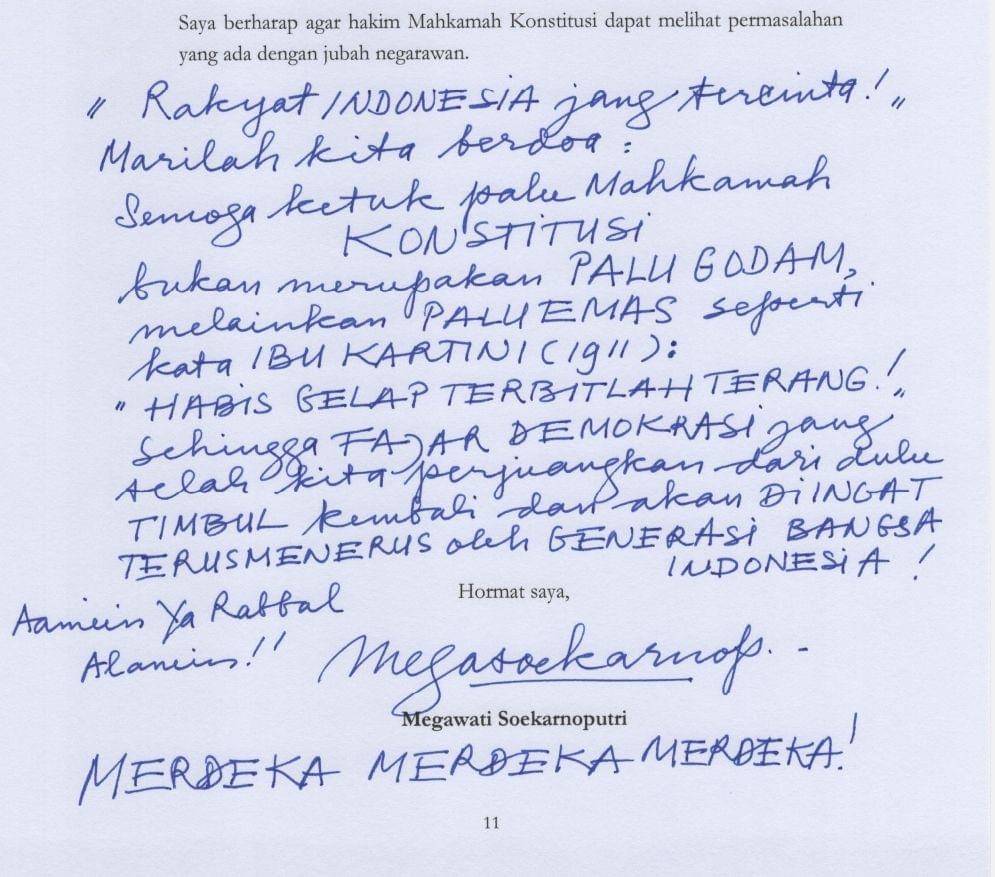 Saya berharap agar hakim Mahkamah Konstitusi dapat melihat permasalahan
yang ada dengan jubah negarawan.
" Rakyat INDONESIA jang tercinta! "
Marilah kita berdoa :
Semoga ketuk palu Mahkamah
KONSTITUSI
bukan merupakan PALU GODAM,
melainkan PALU EMAS seperti
kata IBU KARTINI (1911):
" HABIS GELAP TERBITLAH TERANG! "
Sehingga FAJAR DEMOKRASI jang
telah kita perjuangkan dari dulu
TIMBUL kembali dan akan DIINGAT
TERUSMENERUS oleh GENERASI BANGSA
INDONESIA !
Hormat saya,
Aamiin Ya Rabbal
Alamin!!
Megasoekarnop.
Megawati Soekarnoputri
MERDEKA MERDEKA MERDEKA!
11